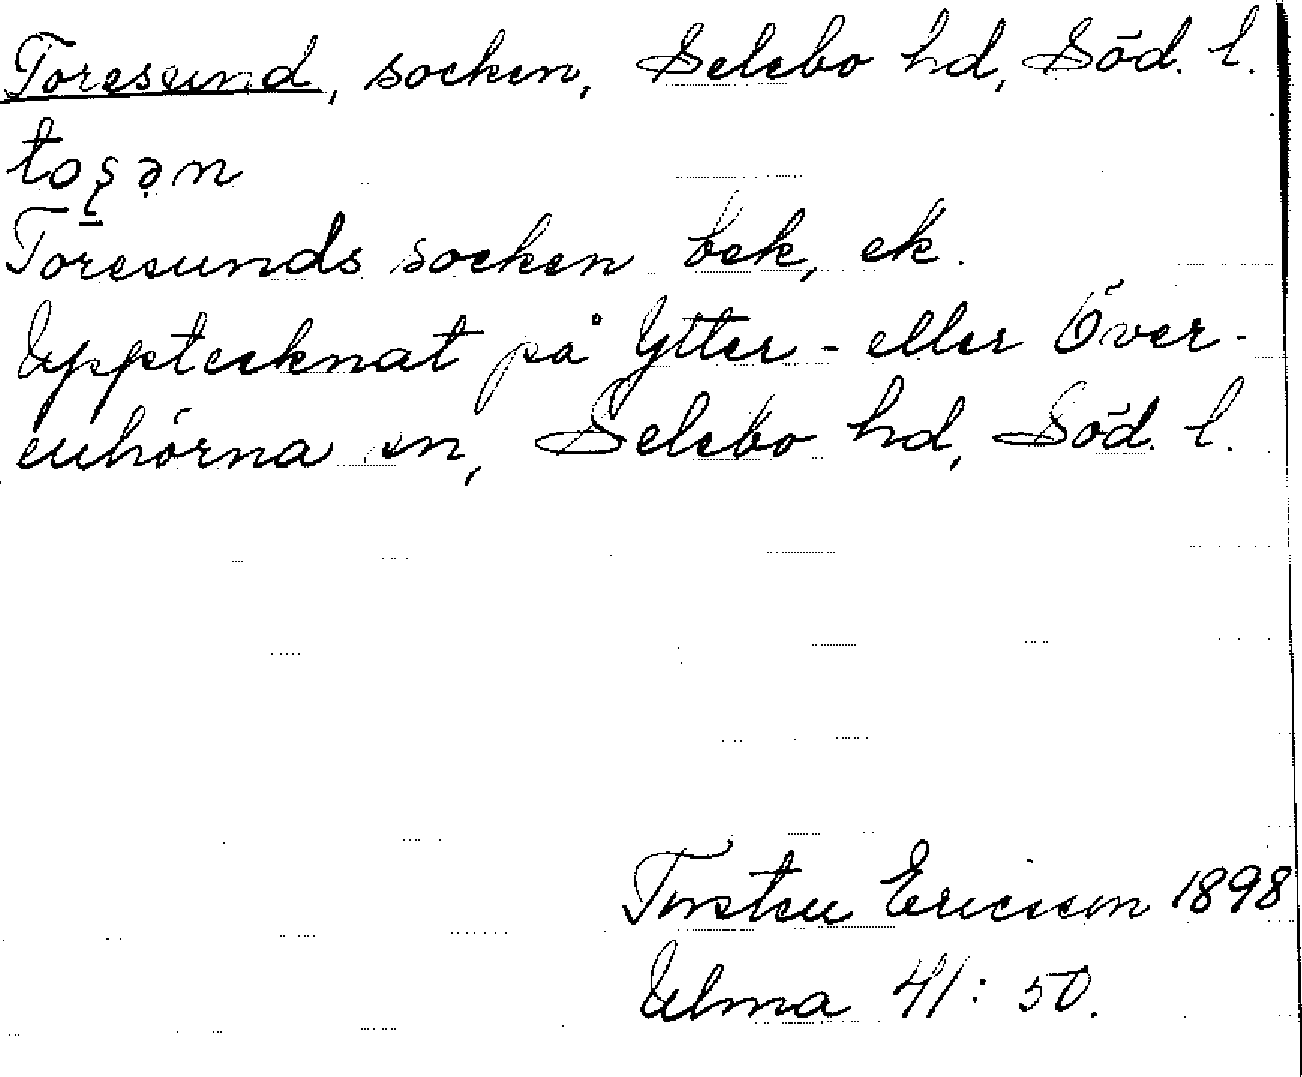 Toresund, socken, Selebo hd, Söd. l.
toʂən
Toresunds socken bek, ek.
Upptecknat på Ytter- eller Över-
enhörna sn, Selebo hd, Söd. l.
Torsten Ericsson 1898
Ulma 41: 50.